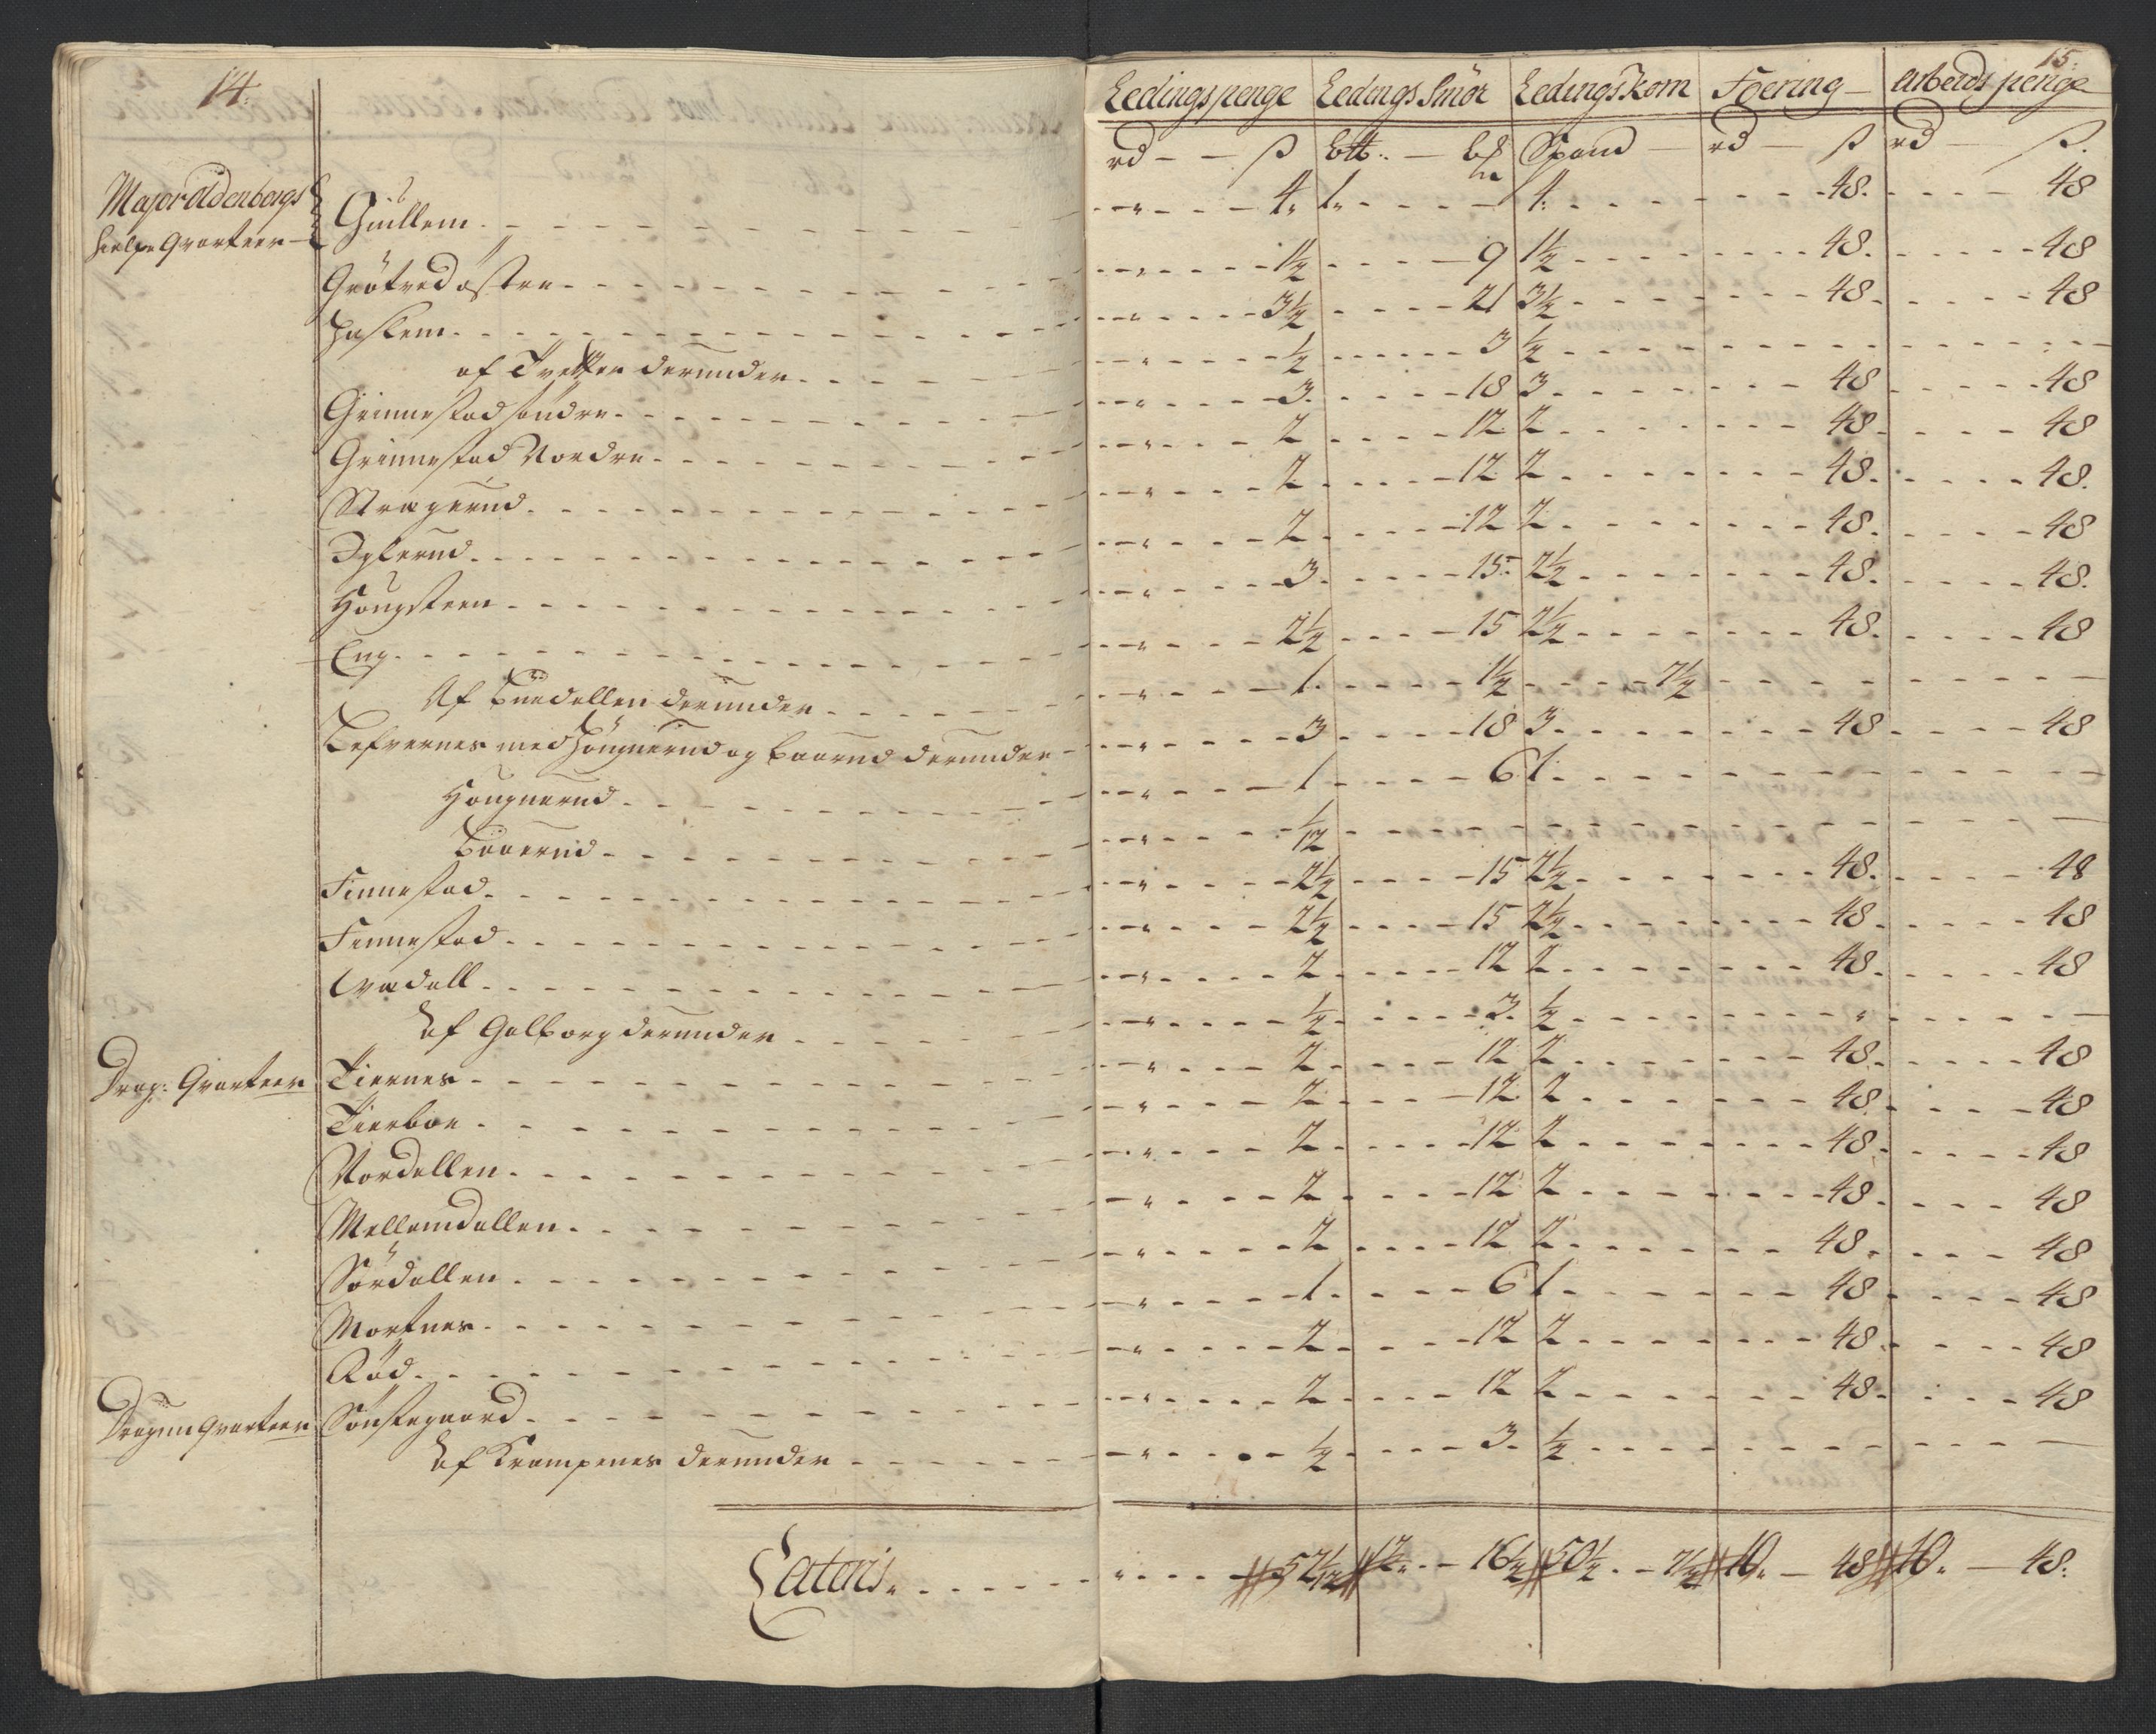 14.
15.
Ledings penge Ledings Smör Ledings Korn Foering Arbeids penge
rd ß Btt: b℔ Spand rd ß rd ß.
Major Oldenborgs
hielpe Qvarteer
Guillem 4. 1. 4. 48. 48
Grötved östre 1½ 9 1½ 48. 48
Haslem 3½ 21 3½ 48. 48
af Tvetter derunder ½ 3 ½
Grimmestad söndre 3. 18 3 48 48
Grimmestad Nordre 2 12 2 48. 48
Stragerud 2 12 2 48. 48.
Igferud 2 12 2 48. 48
Hougsteen 3. 15. 2½ 48. 48.
Eng 2½ 15 2½ 48. 48
Af Buedallen derunder 1. 1½ 7½
Lefvernes med Hougnerud og Baarud derunder 3 18 3 48 48
Hougnerud 1 6 1.
Baaerud 1/12
Finnestad 2½ 15 2½ 48. 48
Femmestad 2½ 15 2½ 48. 48
Evadall 2 12 2 48. 48
af Galborg derunder ½ 3. ½
Drag: Qvarteer Kiernes 2 12 2 48. 48
Kierboe 2 12 2 48. 48
Nordallen 2 12 2 48. 48
Mellemdallen 2 12 2 48. 48
Sördallen 2 12 2 48. 48
Mortnes 1. 6 1. 48 48
Röd 2 12 2 48. 48
Dragun Qvarteer Sönstegaard 2 12 2 48. 48
af Krampenes derunder ½ 3. ½
Lateris 52 1/12 12. 16½ 50½ 7½ 10. 48 10. 48.